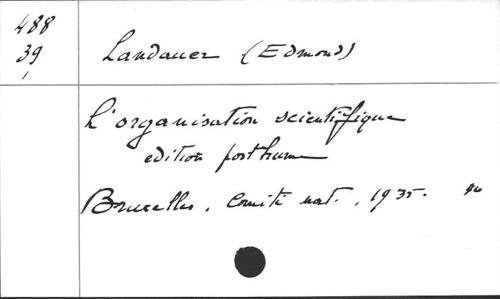 488
39
Landauer (Edmond)
L'organisation scientifique
edition posthume
Bruxelles, Comité nat., 1935.